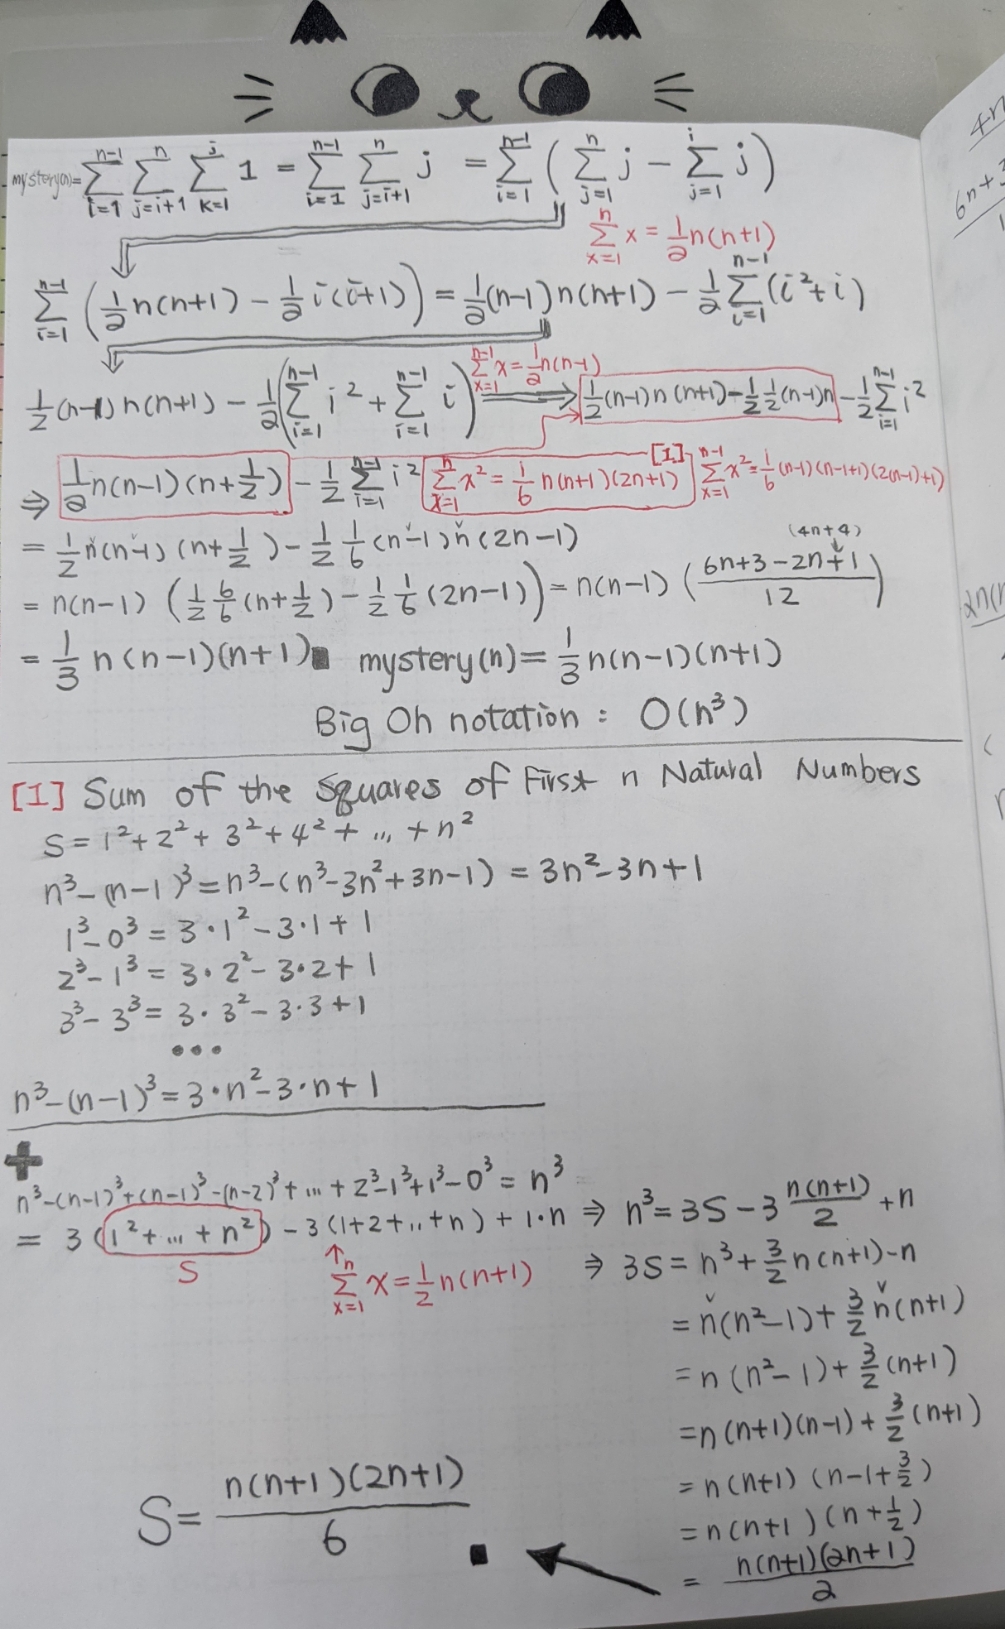 mystery(n)= \sum_{i=1}^{n-1} \sum_{j=i+1}^{n} \sum_{k=1}^{j} 1 = \sum_{i=1}^{n-1} \sum_{j=i+1}^{n} j = \sum_{i=1}^{n-1} ( \sum_{j=1}^{n} j - \sum_{j=1}^{i} j )
\sum_{x=1}^{n} x = \frac{1}{2} n(n+1)
\sum_{i=1}^{n-1} ( \frac{1}{2} n(n+1) - \frac{1}{2} i(i+1) ) = \frac{1}{2} (n-1) n(n+1) - \frac{1}{2} \sum_{i=1}^{n-1} (i²+i)
\sum_{x=1}^{n-1} x = \frac{1}{2} n(n-1)
\frac{1}{2} (n-1) n(n+1) - \frac{1}{2} ( \sum_{i=1}^{n-1} i² + \sum_{i=1}^{n-1} i ) ⇒ \frac{1}{2} (n-1) n (n+1) - \frac{1}{2} \frac{1}{2} (n-1)n - \frac{1}{2} \sum_{i=1}^{n-1} i²
⇒ \frac{1}{2} n(n-1) (n+\frac{1}{2}) - \frac{1}{2} \sum_{i=1}^{n-1} i² \sum_{x=1}^{n} x² = \frac{1}{6} n(n+1)(2n+1) [1] \sum_{x=1}^{n-1} x² = \frac{1}{6} (n-1)(n-1+1)(2(n-1)+1)
(4n+4)
= \frac{1}{2} n(n-1) (n+\frac{1}{2}) - \frac{1}{2} \frac{1}{6} (n-1) n (2n-1)
= n(n-1) ( \frac{1}{2} \frac{6}{6} (n+\frac{1}{2}) - \frac{1}{2} \frac{1}{6} (2n-1) ) = n(n-1) ( \frac{6n+3-2n+1}{12} )
= \frac{1}{3} n(n-1)(n+1) ■ mystery(n) = \frac{1}{3} n(n-1)(n+1)
Big Oh notation : O(n³)
[1] Sum of the squares of First n Natural Numbers
S = 1² + 2² + 3² + 4² + ... + n²
n³ - (n-1)³ = n³ - (n³-3n²+3n-1) = 3n² - 3n + 1
1³ - 0³ = 3·1² - 3·1 + 1
2³ - 1³ = 3·2² - 3·2 + 1
3³ - 3³ = 3·3² - 3·3 + 1
•••
n³ - (n-1)³ = 3·n² - 3·n + 1
+
n³ - (n-1)³ + (n-1)³ - (n-2)³ + ... + 2³ - 1³ + 1³ - 0³ = n³
= 3 (1² + ... + n²) - 3 (1+2+..+n) + 1·n ⇒ n³ = 3S - 3 \frac{n(n+1)}{2} + n
S
\sum_{x=1}^{n} x = \frac{1}{2} n(n+1)
⇒ 3S = n³ + \frac{3}{2} n(n+1) - n
= n(n²-1) + \frac{3}{2} n(n+1)
= n (n²-1) + \frac{3}{2} (n+1)
= n (n+1)(n-1) + \frac{3}{2} (n+1)
= n(n+1) (n-1+\frac{3}{2})
= n(n+1) (n+\frac{1}{2})
= \frac{n(n+1)(2n+1)}{2}
S = \frac{n(n+1)(2n+1)}{6} ■
4n
6n+3
2n(n